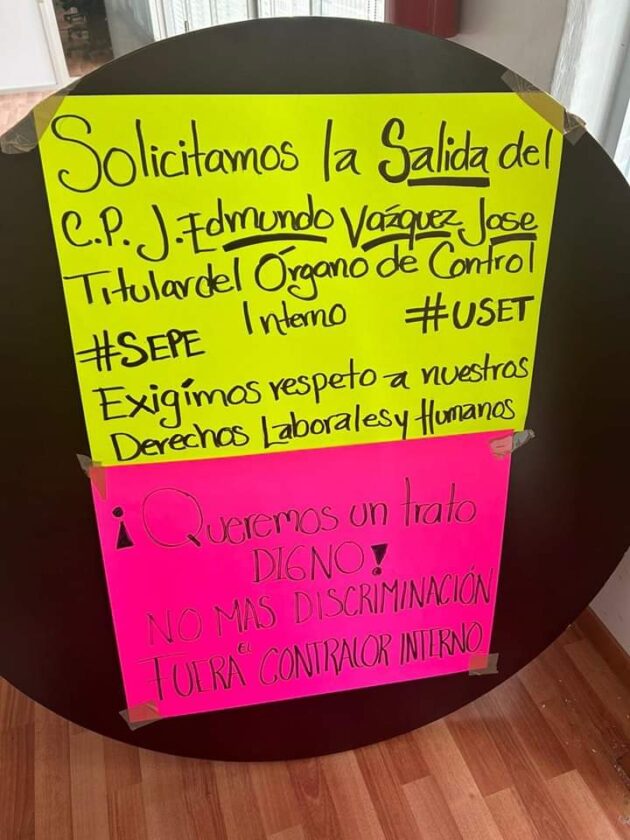 Solicitamos la Salida del
C.P. J. Edmundo Vazquez Jose
Titular del Órgano de Control
Interno
#SEPE #USET
Exigímos respeto a nuestros
Derechos Laborales y Humanos
¡Queremos un trato
DIGNO!
NO MAS DISCRIMINACIÓN
FUERA EL CONTRALOR INTERNO